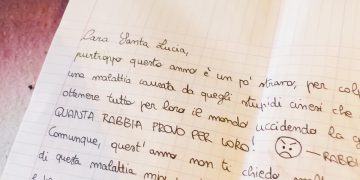 Cara Santa Lucia,
purtroppo questo anno è un po' strano, per col
una malattia causata da quegli stupidi cinesi che
ottenere tutto per loro il mondo uccidendo la g
QUANTA RABBIA PROVO PER LORO! — RABBI
Comunque, quest'anno non ti chiedo molt
di questa malattia mi